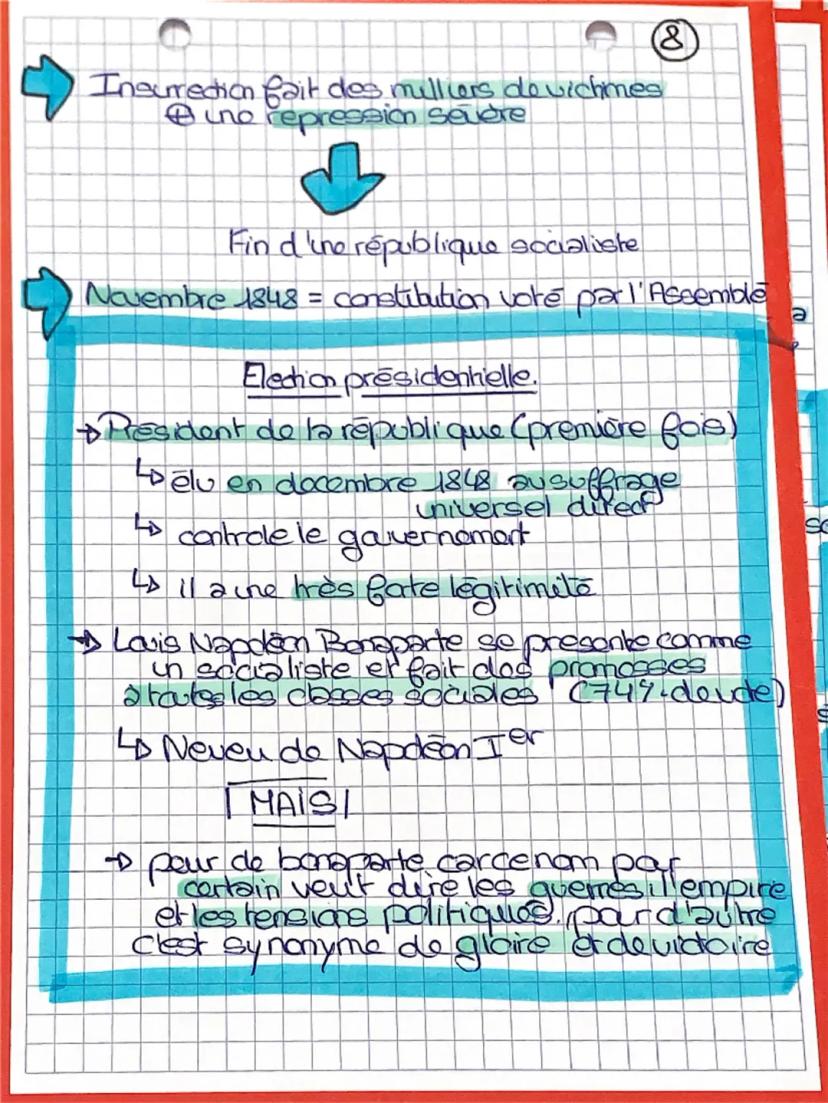 8
Insurrection fait des milliers de victimes
⊕ une repression sévère
Fin d'une république socialiste
Novembre 1848 = constitution voté par l'Assemblé
Election présidentielle.
→ Président de la république (première fois)
↳ élu en decembre 1848 au suffrage
universel direct
↳ controle le gouvernement
↳ il a une très forte légitimité
→ Louis Napoléon Bonaparte se presente comme
un socialiste et fait des promesses
a toutes les classes sociales (74% de vote)
↳ Neveu de Napoléon Ier
MAIS
→ peur de bonaparte, car ce nom par
certain veut dire les guerres, l'empire
et les tensions politiques, pour d'autre
c'est synonyme de gloire et de victoire